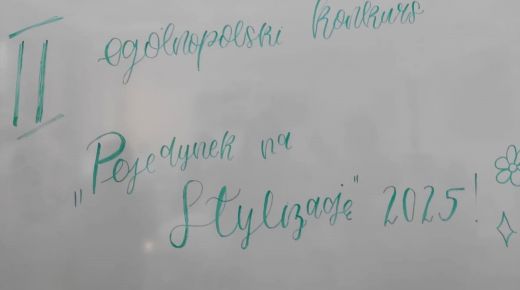 II ogólnopolski konkurs
„Pojedynek na
Stylizację" 2025!